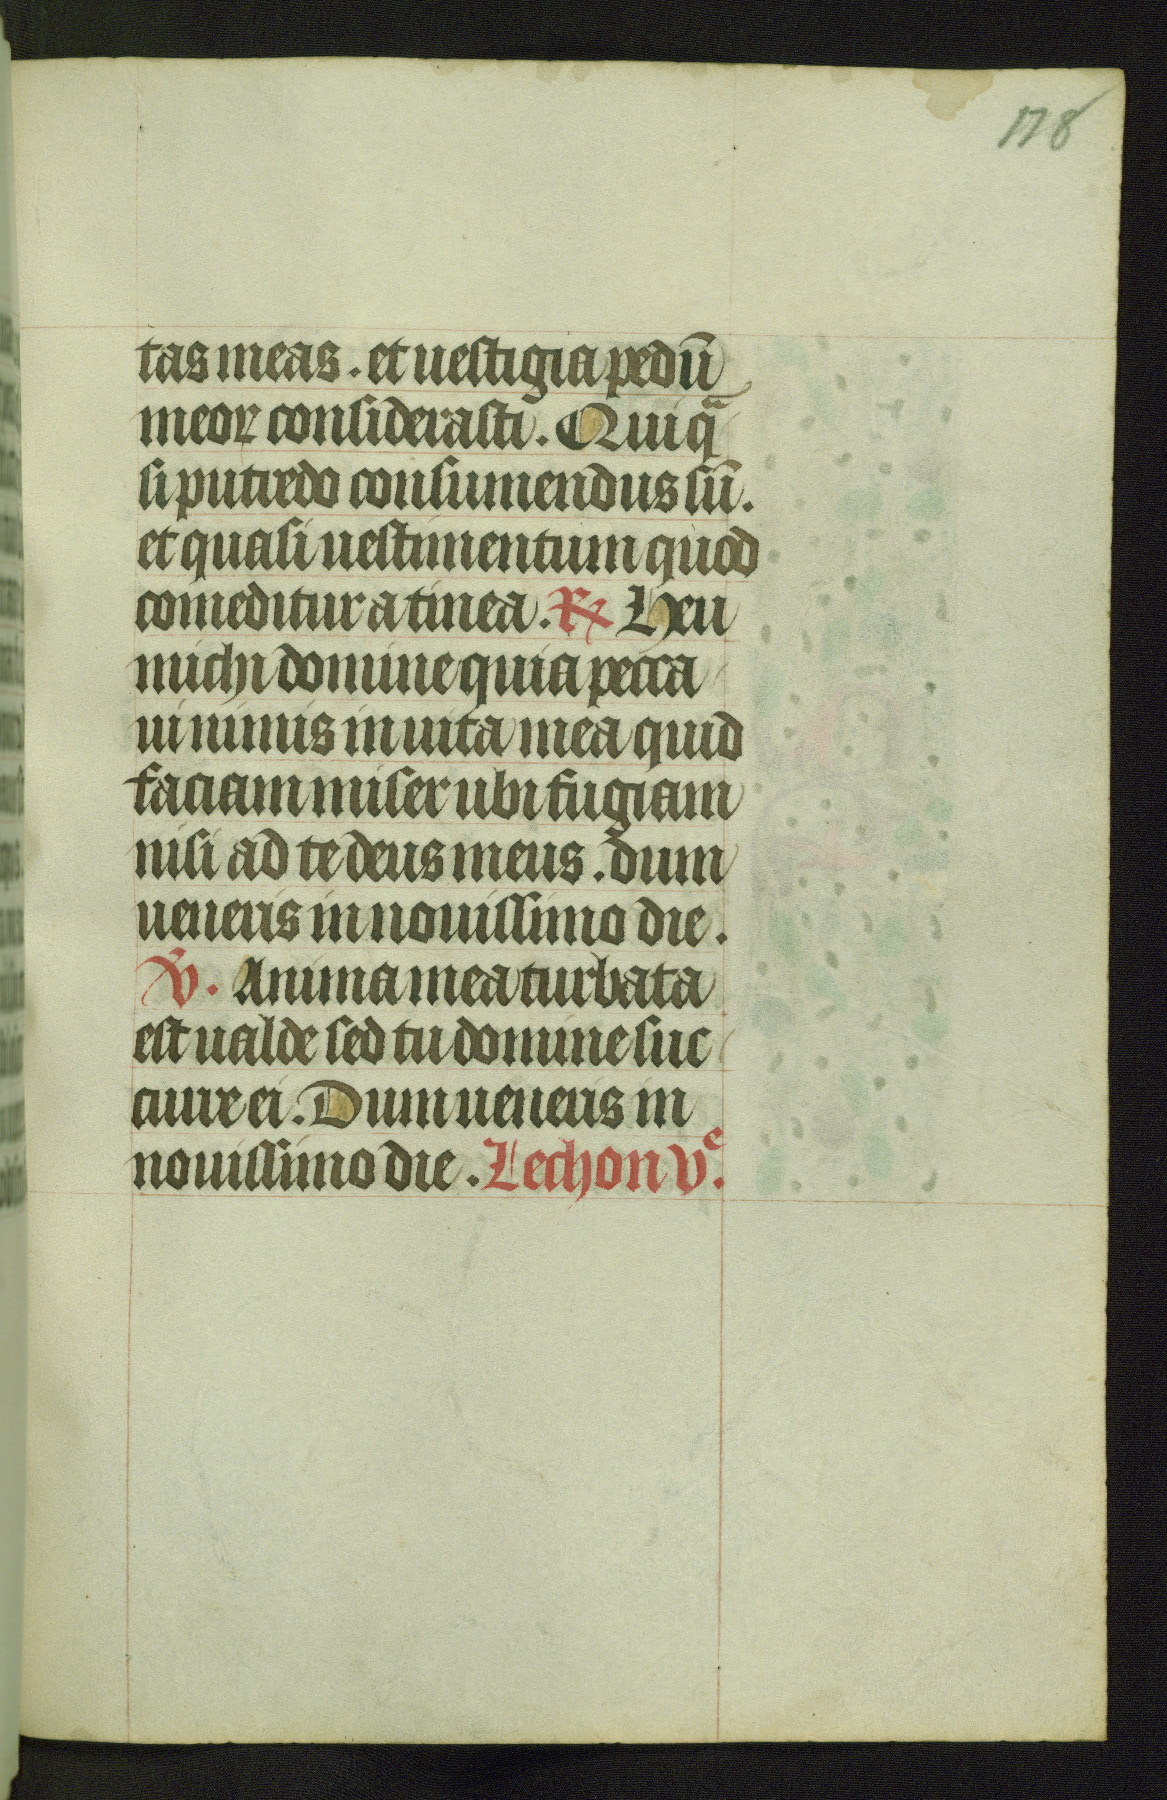 178
tas meas . et uestigia pedū
meoꝝ considerasti . Qui q̄
si putredo consumendus sū .
et quasi uestimentum quod
comeditur a tinea . ℟ Heu
michi domine quia pecca
ui nimis in uita mea quid
faciam miser ubi fugiam
nisi ad te deus meus . dum
ueneris in nouissimo die .
℣ . Anima mea turbata
est ualde sed tu domine suc
curre ei . Dum ueneris in
nouissimo die . Lechon vᵉ .